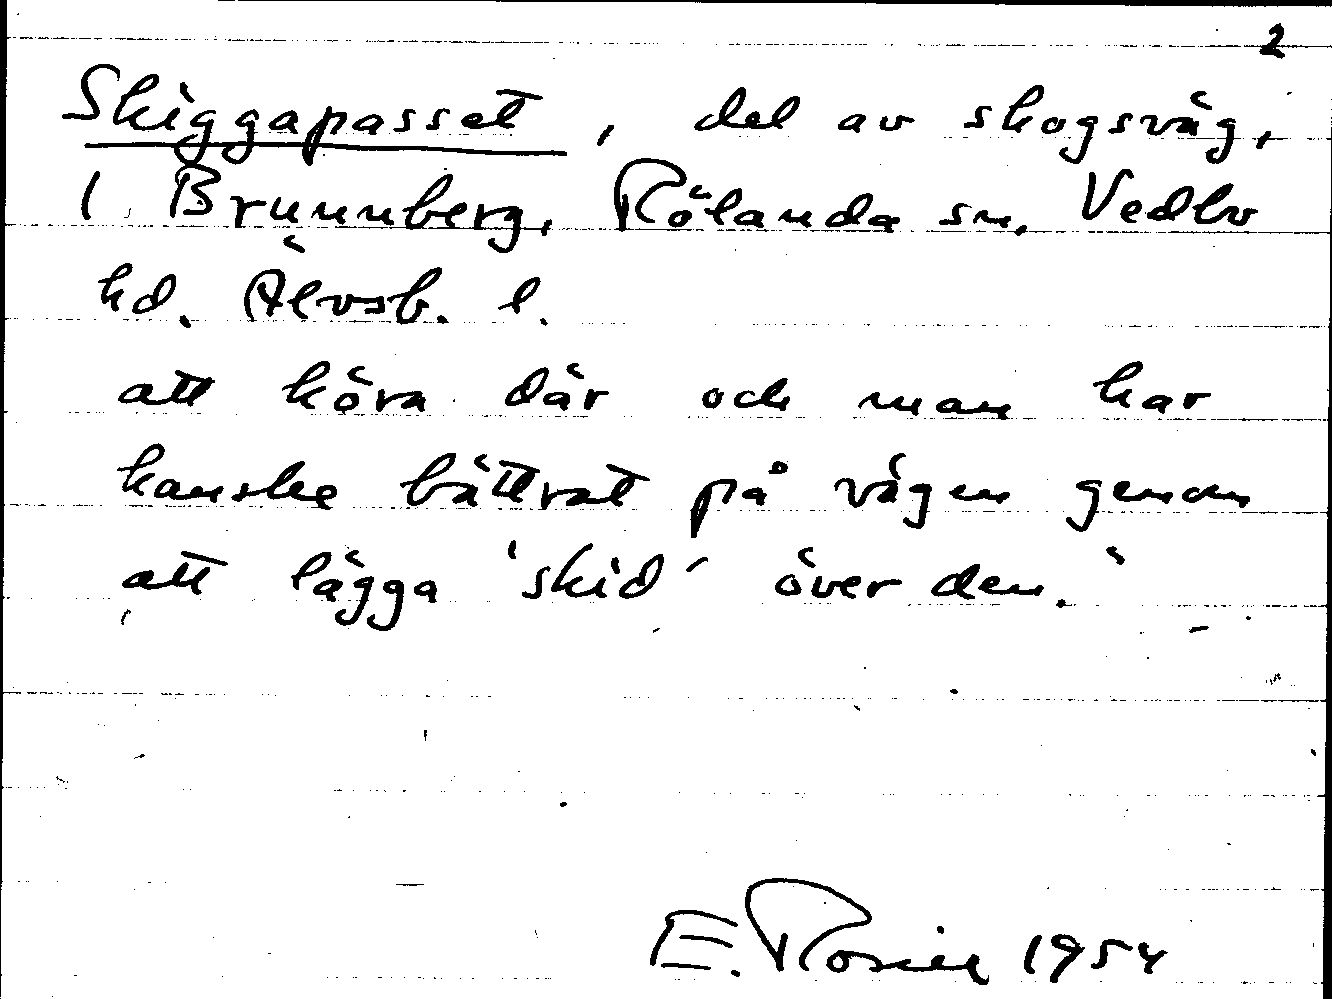 2
Skiggapasset, del av skogsväg,
1 Brunnberg, Rölanda sn, Vedbo
hd. Älvsb. l.
att köra där och man har
kanske bättrat på vägen genom
att lägga 'skid' över den."
E. Rosell 1954